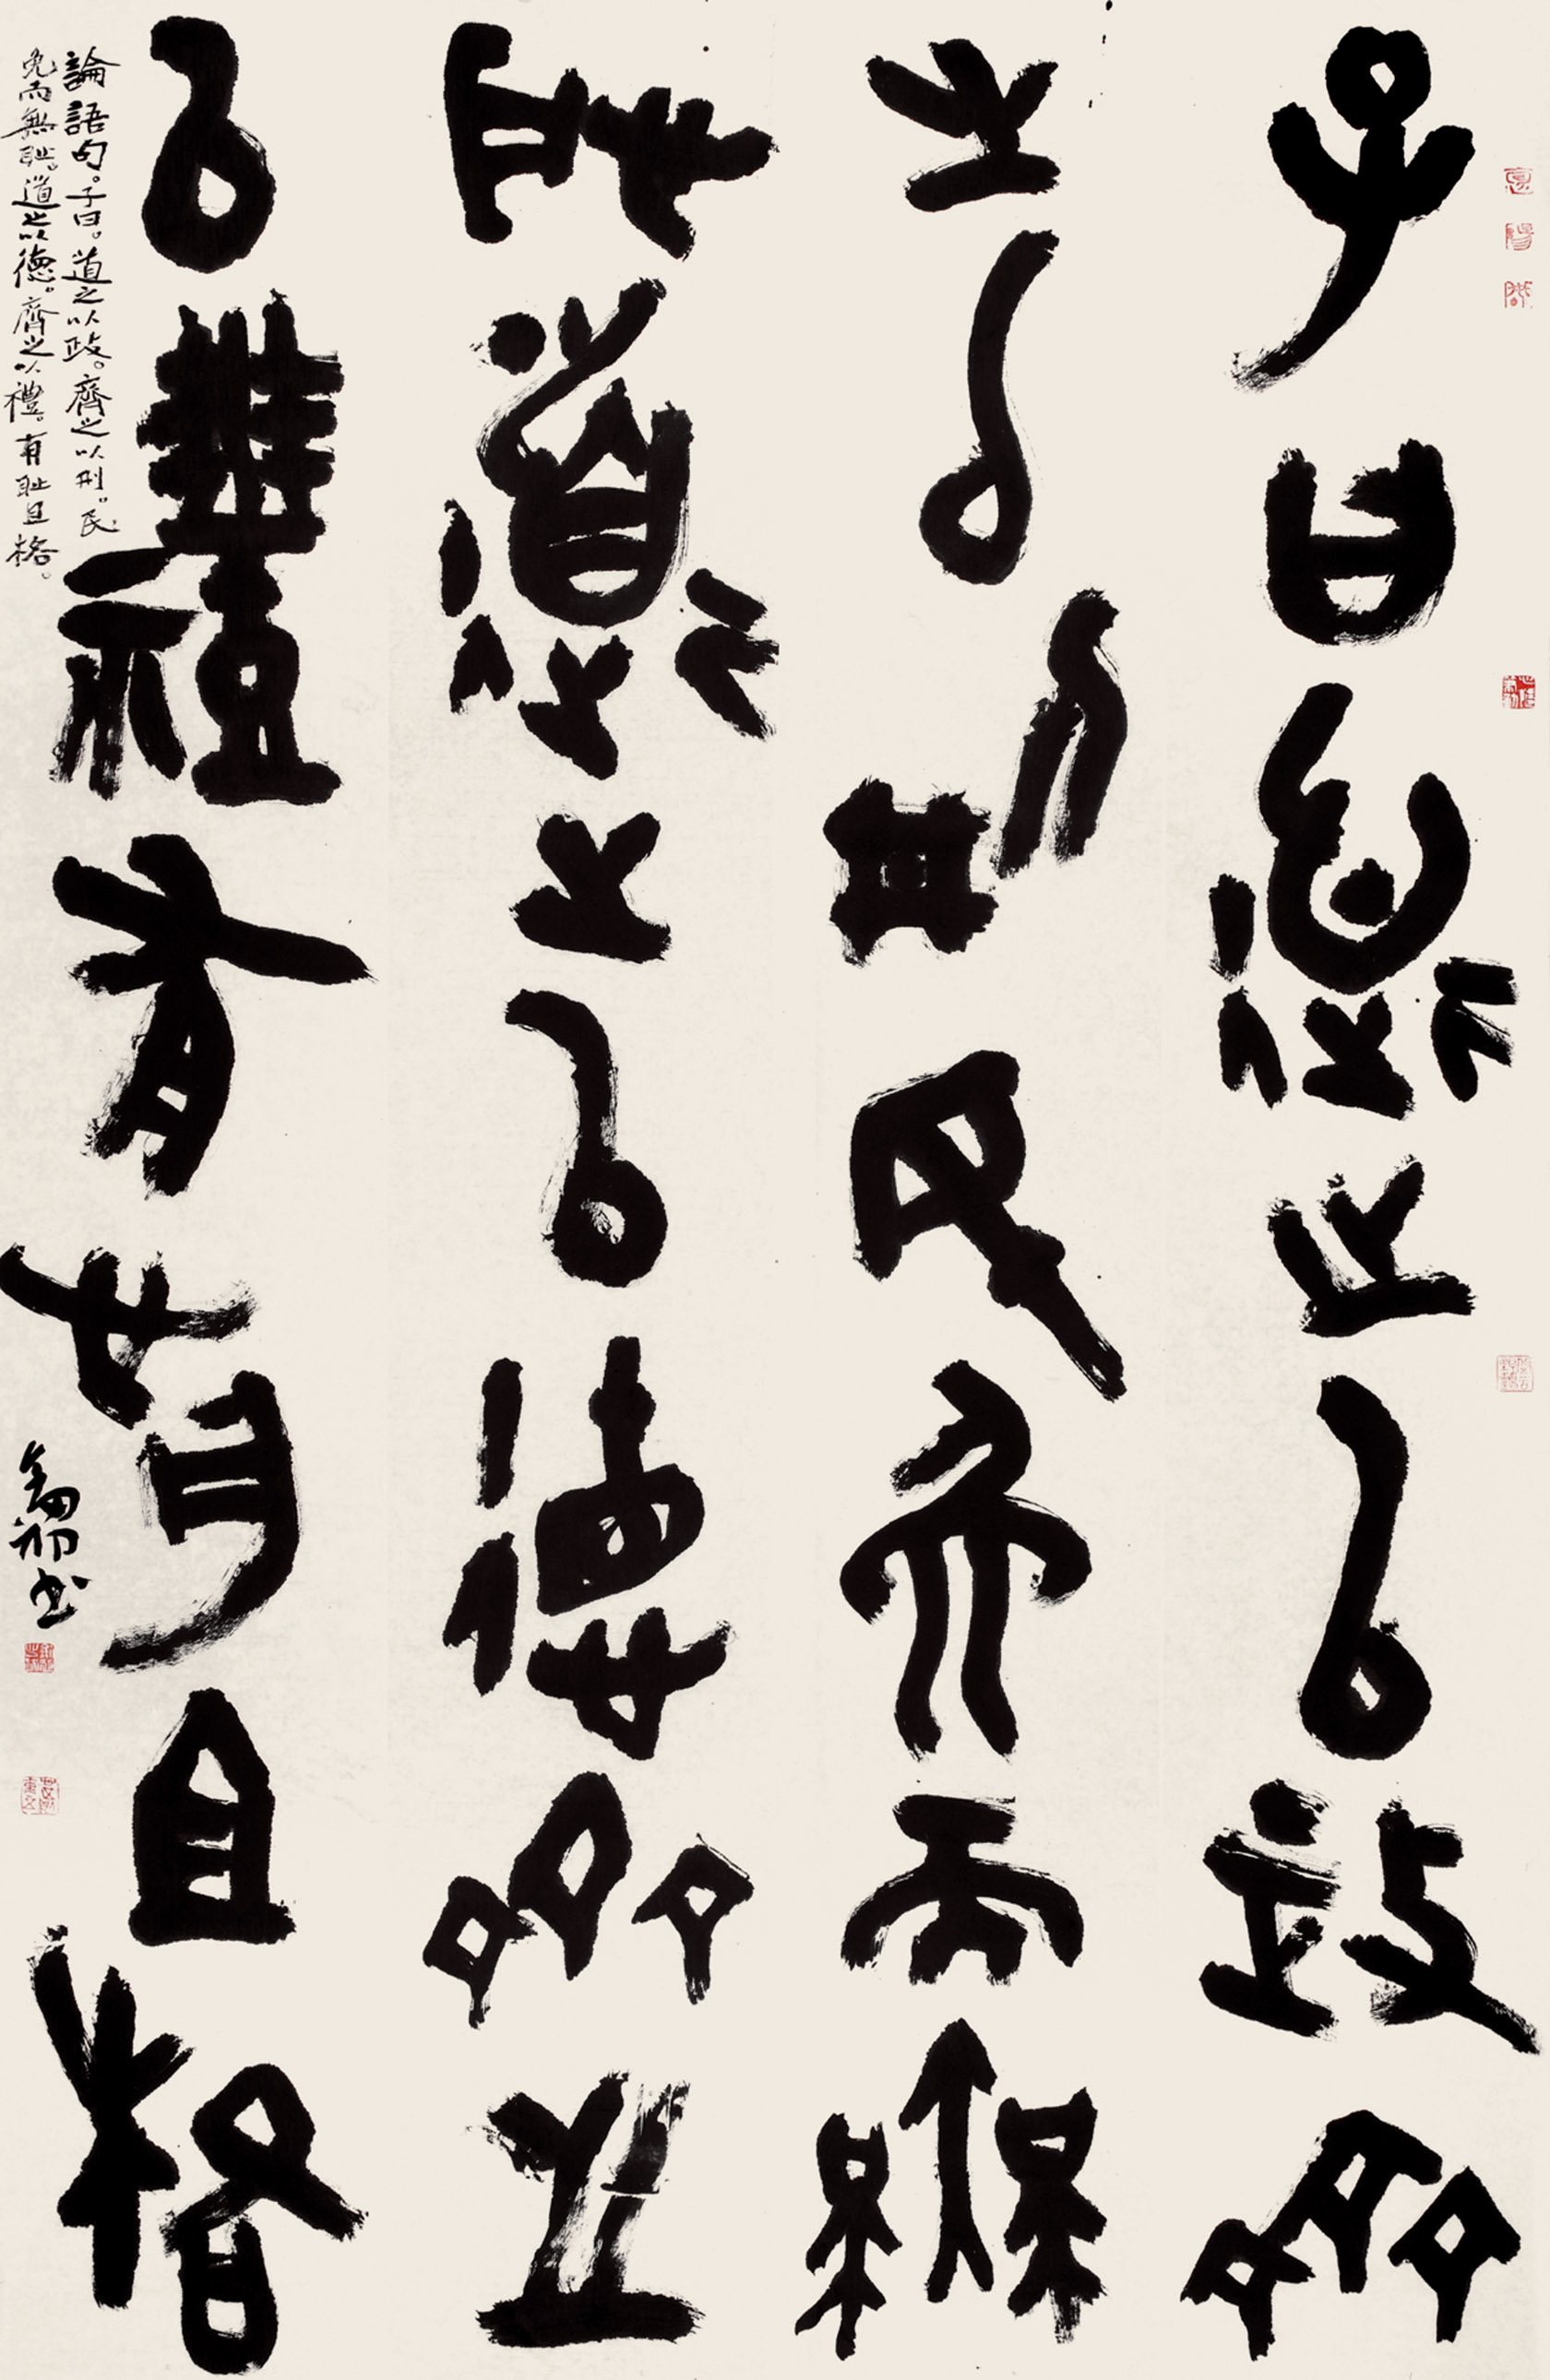 子曰道之以政齊
之以刑民免而無
耻道之以德齊之
以禮有耻且格
論語句。子曰。道之以政。齊之以刑。民
免而無耻。道之以德。齊之以禮。有耻且格。